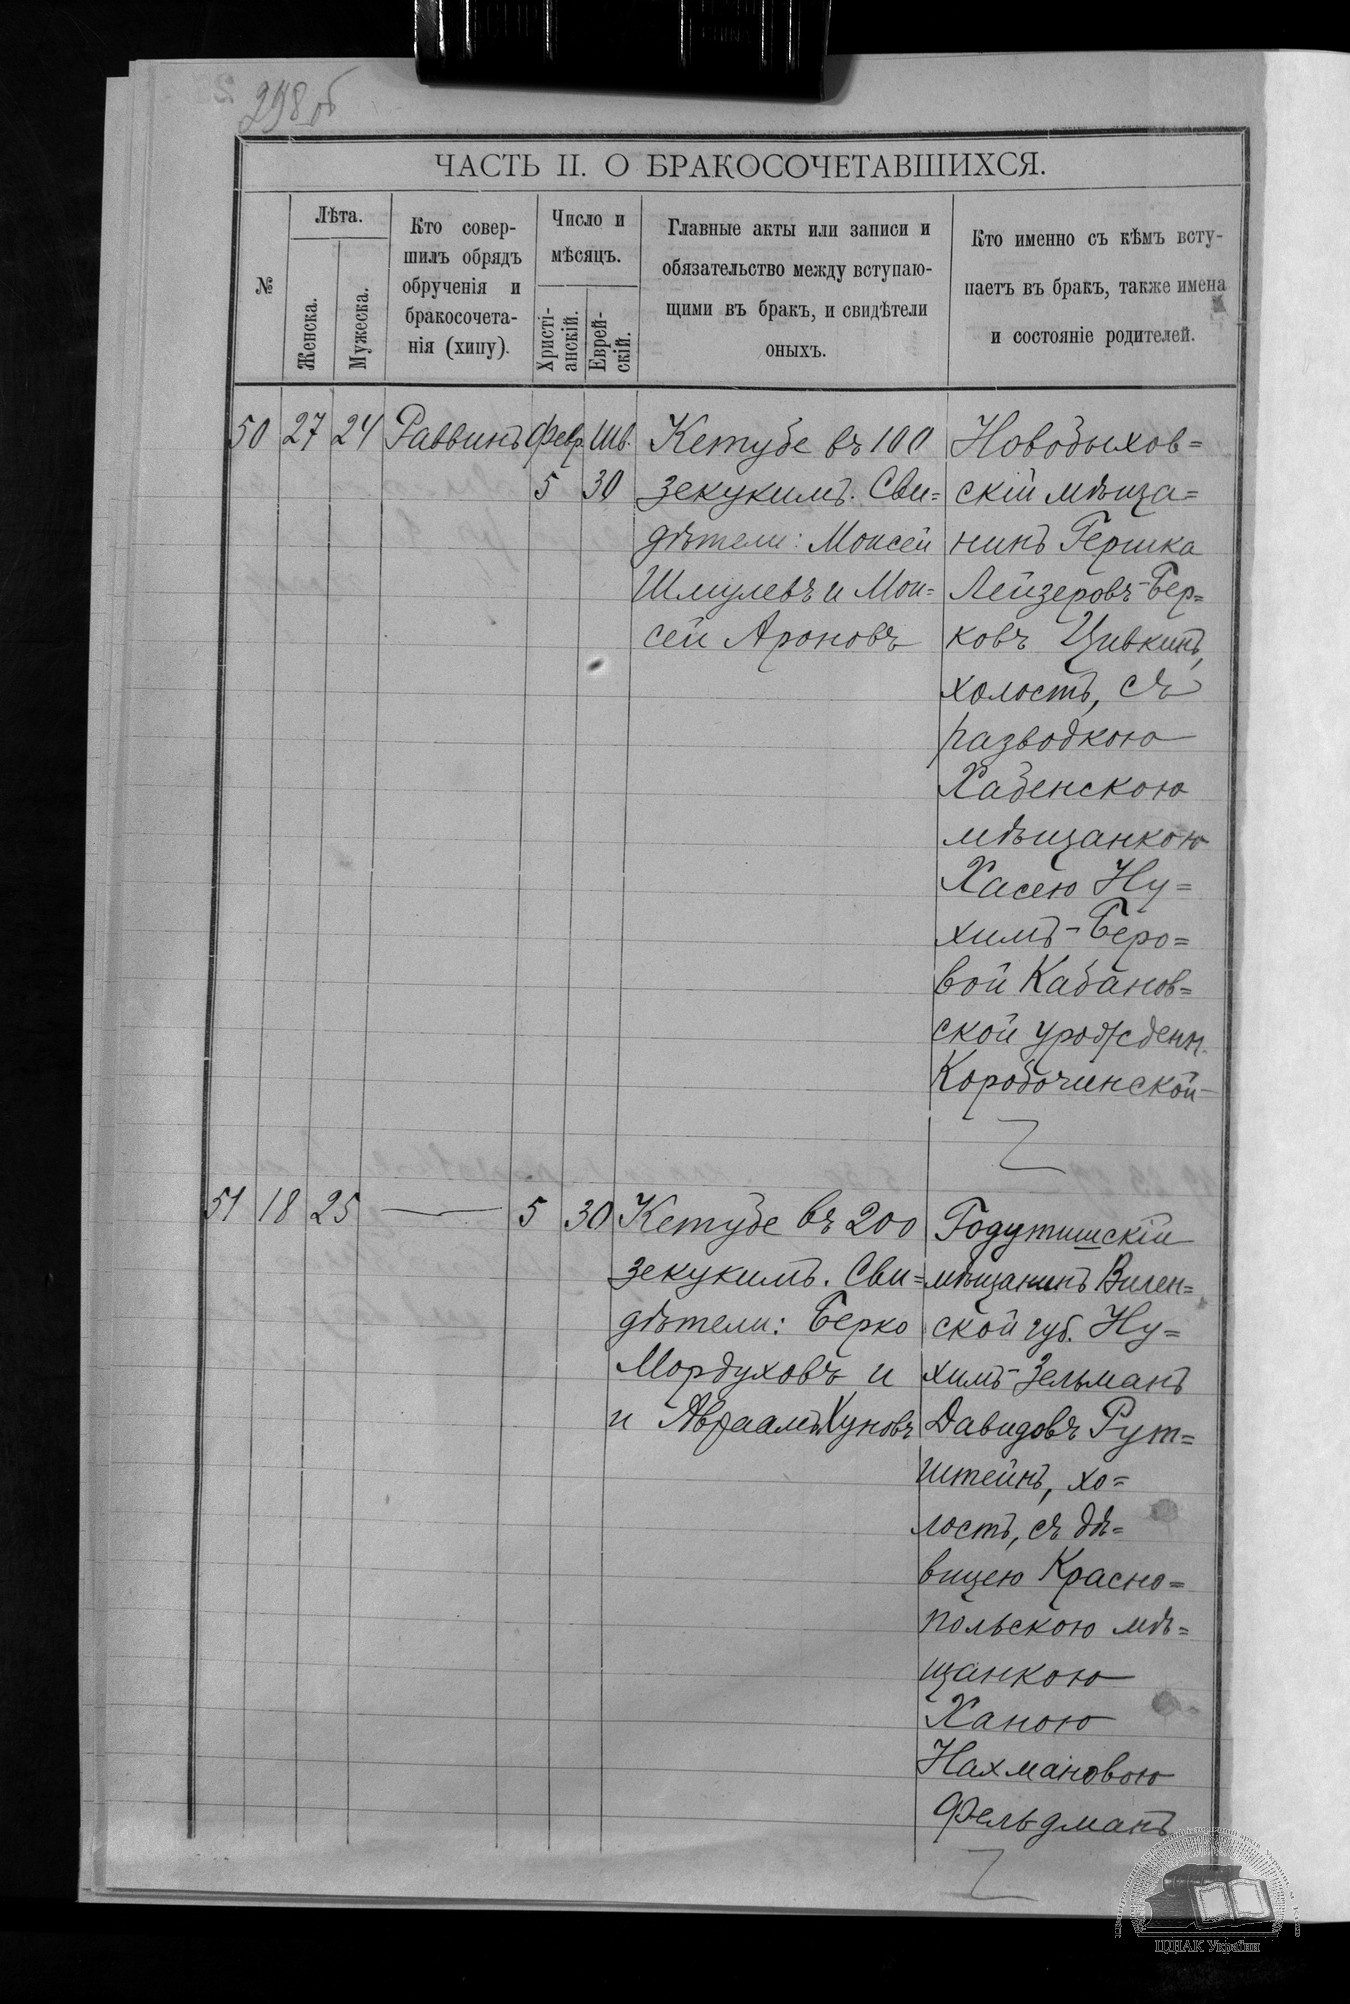 298 об
ЧАСТЬ II. О БРАКОСОЧЕТАВШИХСЯ.
№
Лѣта.
Женска.
Мужеска.
Кто совер-
шилъ обрядъ
обрученія и
бракосочета-
нія (хипу).
Число и
мѣсяцъ.
Христі-
анскій.
Еврей-
скій.
Главные акты или записи и
обязательство между вступаю-
щими въ брак, и свидѣтели
оныхъ.
Кто именно съ кѣмъ всту-
паетъ въ бракъ, также имена
и состояніе родителей.
50 27 24 Раввинъ Февр. Шв.
5 30
Кетубе въ 100
зекукимъ. Сви=
дѣтели: Моисей
Шмулевъ и Мои=
сей Ароновъ
Новобыхов=
скій мѣща=
нинъ Гершка
Лейзеровъ-Бер=
ковъ Цивкинъ,
холостъ, съ
разводкою
Хабенскою
мѣщанкою
Хасею Ну=
химъ-Беро=
вой Кабанов=
ской урожденн.
Коробочинской
51 18 25 — 5 30
Кетубе въ 200
зекукимъ. Сви=
дѣтели: Берко
Мордуховъ и
и Авраамъ Хуновъ
Годутишскій
мѣщанинъ Вилен=
ской губ. Ну=
химъ-Зельманъ
Давидовъ Рут=
штейнъ, хо=
лостъ, съ дѣ=
вицею Красно=
польскою мѣ=
щанкою
Ханою
Нахмановою
Фельдманъ
ЦДІАК України